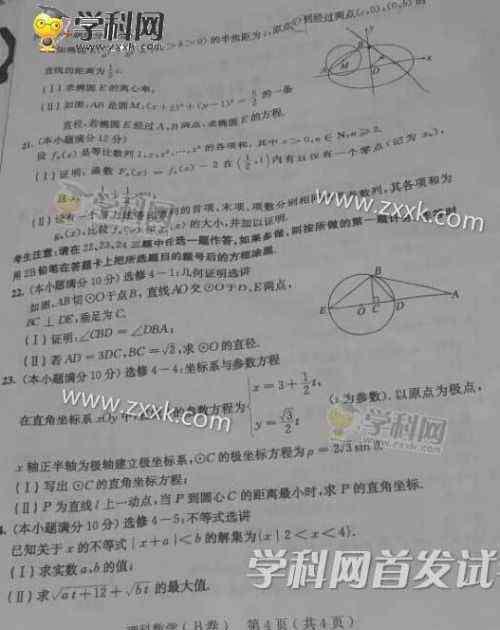 学科网
www.zxxk.com
>b>0)的半焦距为c,原点O到经过两点(c,0),(0,b)的
直线的距离为½c.
(Ⅰ)求椭圆E的离心率;
(Ⅱ)如图,AB是圆M:(x+2)²+(y-1)²=5/2的一条
直径,若椭圆E经过A,B两点,求椭圆E的方程.
21.(本小题满分12分)
设fₙ(x)是等比数列1,x,x²,…,xⁿ的各项和,其中x>0,n∈N,n≥2.
(Ⅰ)证明:函数Fₙ(x)=fₙ(x)-2在(½,1)内有且仅有一个零点(记为xₙ),
(Ⅱ)设有一个与上述等比数列的首项,末项,项数分别相同的等差数列,其各项和为
gₙ(x),比较fₙ(x)与gₙ(x)的大小,并加以证明.
www.zxxk.com
考生注意:请在22,23,24三题中任选一题作答,如果多做,则按所做的第一题计分.
用2B铅笔在答题卡上把所选题目的题号后的方框涂黑.
22.(本小题满分10分)选修4-1:几何证明选讲
如图,AB切⊙O于点B,直线AO交⊙O于D,E两点,
BC⊥DE,垂足为C.
(Ⅰ)证明:∠CBD=∠DBA;
(Ⅱ)若AD=3DC,BC=√2,求⊙O的直径.
E O C D A B
23.(本小题满分10分)选修4-4:坐标系与参数方程
在直角坐标系xOy中,
的参数方程为{x=3+½t, y=√3/2 t (t为参数).以原点为极点,
www.zxxk.com
学科网
x轴正半轴为极轴建立极坐标系,⊙C的极坐标方程为ρ=2√3sinθ.
(Ⅰ)写出⊙C的直角坐标方程;
(Ⅱ)P为直线l上一动点,当P到圆心C的距离最小时,求P的直角坐标.
(本小题满分10分)选修4-5:不等式选讲
已知关于x的不等式|x+a|<b的解集为{x|2<x<4}.
(Ⅰ)求实数a,b的值;
(Ⅱ)求√at+12+√bt的最大值.
学科网首发试
理科数学(B卷) 第4页(共4页)